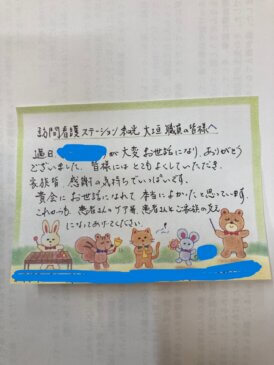 訪問看護ステーション 大垣 職員の皆様へ
過日 が大変お世話になり、ありがとう
ございました。皆様にはとてもよくしていただき、
家族皆、感謝の気持ちでいっぱいです。
貴会にお世話になれて本当によかったと思っています。
これからも、患者さんのケア等、患者さんとご家族の支え
になってあげてください。